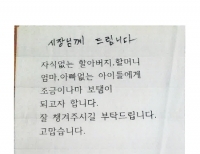 시장님께 드립니다
자식없는 할아버지,할머니
엄마,아빠없는 아이들에게
조금이나마 보탬이
되고자 합니다.
잘 챙겨주시길 부탁드립니다.
고맙습니다.